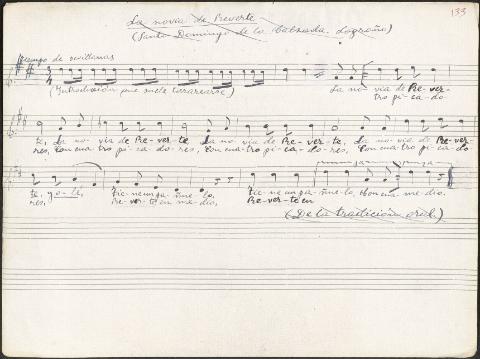 133
La novia de Reverte
(Santo Domingo de la Calzada. Logroño)
tiempo de sevillanas
(Introducción que suele tararearse) La no-via de Re-ver-
tro pi-ca-do
te, La no-via de Re-ver-te, La no-via de Re-ver-te, La no-via de Re-ver-
res, Con cua-tro pi-ca-do-res, Con cua-tro pi-ca-do-res, Con cua-tro pi-ca-do
te, yo-te,
res, Re-ver-te en me-dio, Re-ver-te en
(De la tradición oral.)